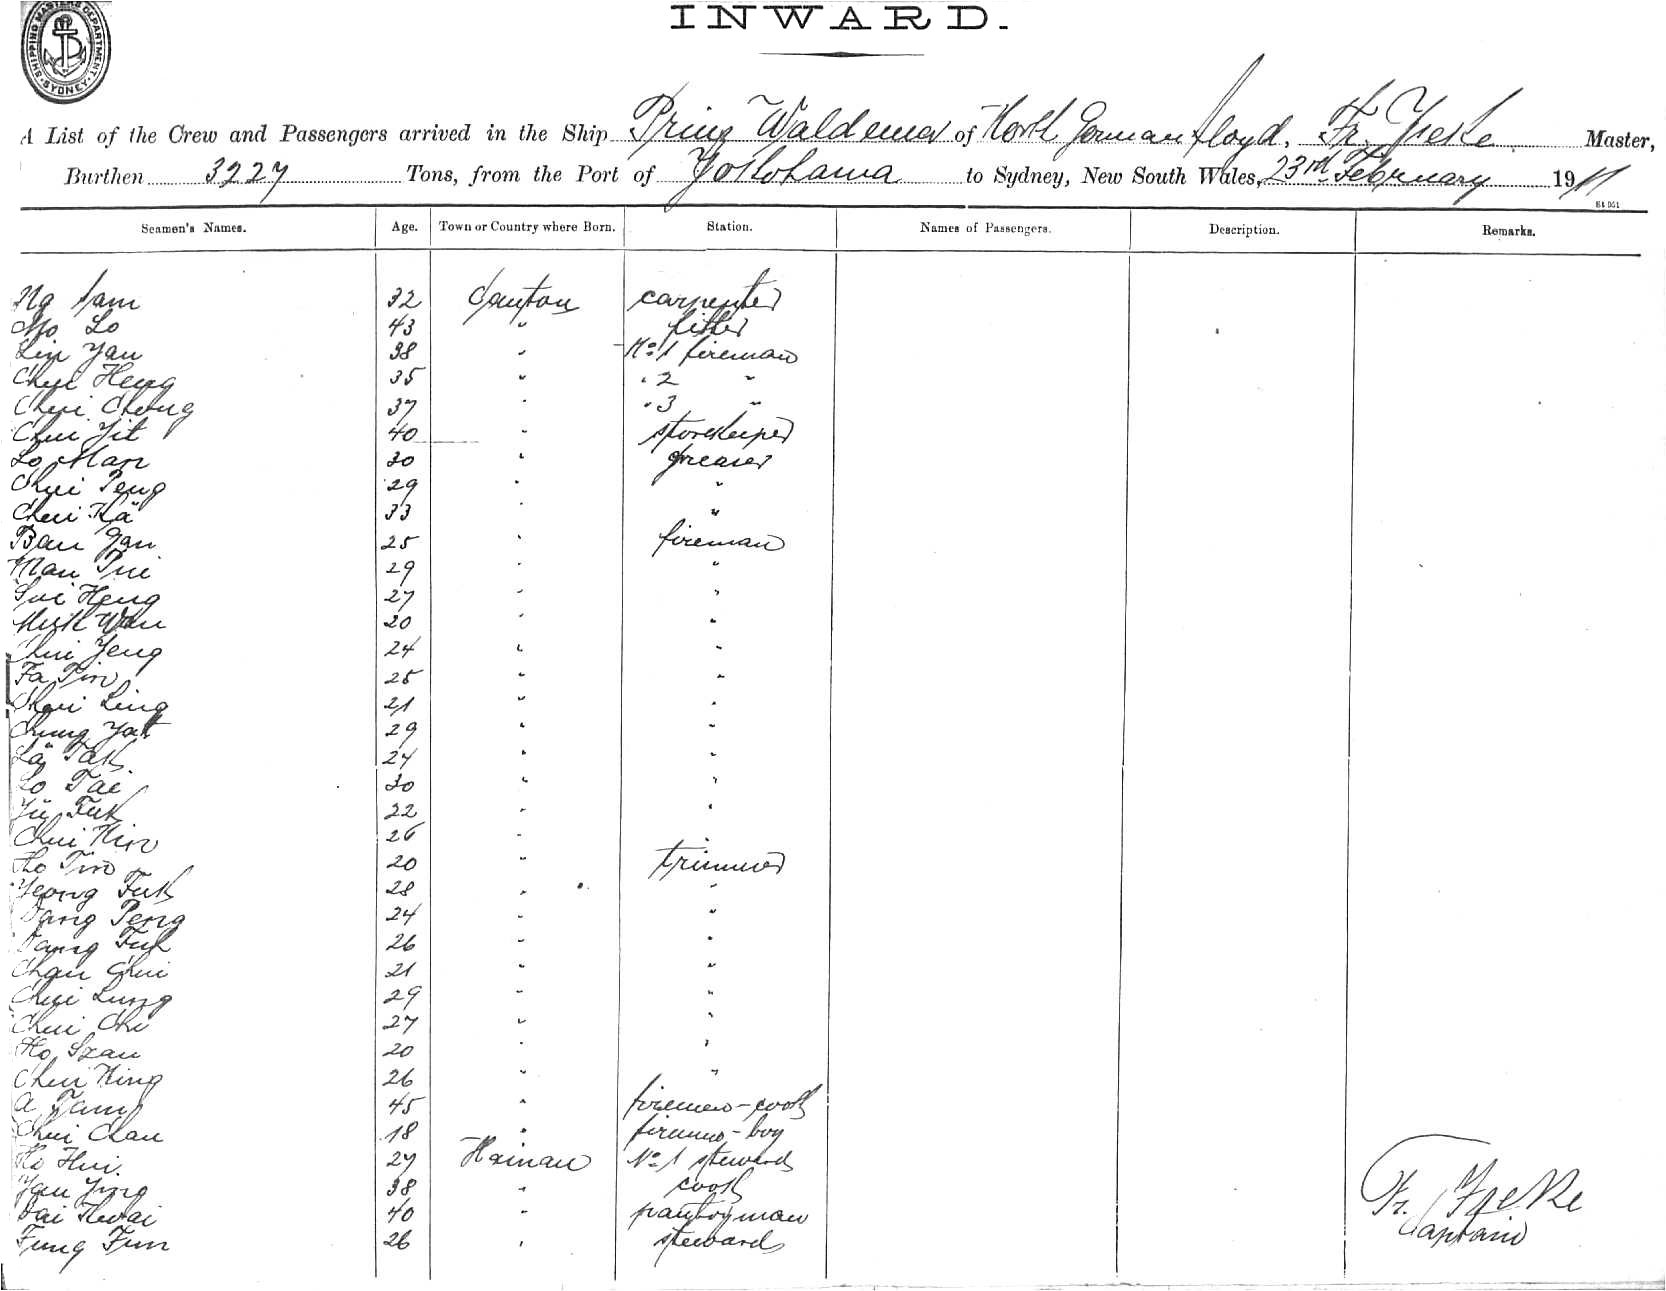 SHIPPING MASTERS DEPARTMENT SYDNEY
INWARD.
A List of the Crew and Passengers arrived in the Ship Prinz Waldemar of North German Lloyd, Fr. Master,
Burthen 3227 Tons, from the Port of Yokohama to Sydney, New South Wales, 23rd February 1911
Seamen's Names. Age. Town or Country where Born. Station. Names of Passengers. Description. Remarks.
Ng Sam 32 Canton carpenter
Mo Lo 43 " fitter
Lin Yau 38 " No 1 fireman
Chui Heng 35 " " 2 "
Chui Chong 37 " " 3 "
Chui Yit 40 " storekeeper
Lo Man 30 " greaser
Chui Peng 29 " "
Chui Kä 33 " "
Bau Yan 25 " fireman
Mau Tui 29 " "
Sui Heng 27 " "
Muk Wau 20 " "
Chui Yeng 24 " "
Fa Tim 25 " "
Chui Ling 21 " "
Chung Yat 29 " "
Lä Tak 24 " "
Lo Tai 30 " "
Yü Fuk 22 " "
Chui Kin 26 " "
Ho Tim 20 " trimmer
Yeong Fuk 28 " "
Tang Peng 24 " "
Tang Fuk 26 " "
Chan Chui 21 " "
Chui Lung 29 " "
Chui Chi 27 " "
Ho Szau 20 " "
Chui King 26 " "
A Tam 45 " firemen-cook
Chui Chau 18 " firemen-boy
Ho Hui. 27 Hainau No 1 steward
Yau Ying 38 " cook
Tai Kwai 40 " pantryman
Fung Fun 26 " steward
Fr.
Captain